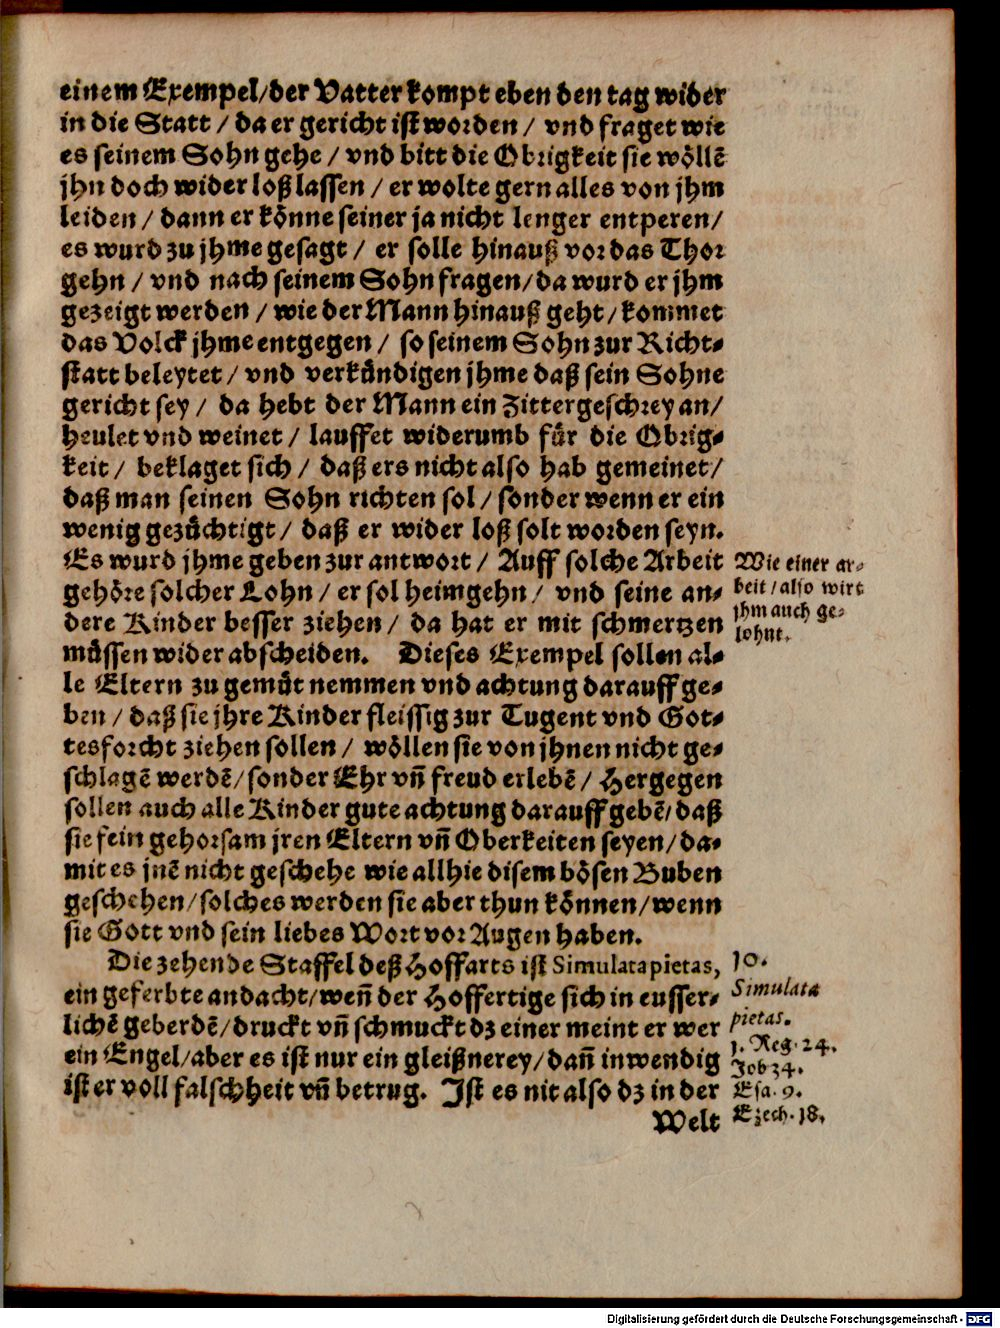 einem Exempel/der Vatter kompt eben den tag wider
in die Statt / da er gericht ist worden / vnd fraget wie
es seinem Sohn gehe / vnd bitt die Obrigkeit sie wöllē
jhn doch wider loß lassen / er wolte gern alles von jhm
leiden / dann er könne seiner ja nicht lenger entperen/
es wurd zu jhme gesagt / er solle hinauß vor das Thor
gehn / vnd nach seinem Sohn fragen/da wurd er jhm
gezeigt werden / wie der Mann hinauß geht/ kommet
das Volck jhme entgegen / so seinem Sohn zur Richt-
statt beleytet / vnd verkündigen jhme daß sein Sohne
gericht sey / da hebt der Mann ein Zittergeschrey an/
heulet vnd weinet / lauffet widerumb für die Obrig-
keit / beklaget sich / daß ers nicht also hab gemeinet/
daß man seinen Sohn richten sol / sonder wenn er ein
wenig gezüchtigt / daß er wider loß solt worden seyn.
Es wurd jhme geben zur antwort / Auff solche Arbeit
gehöre solcher Lohn / er sol heimgehn / vnd seine an-
dere Kinder besser ziehen / da hat er mit schmertzen
müssen wider abscheiden. Dieses Exempel sollen al-
le Eltern zu gemüt nemmen vnd achtung darauff ge-
ben / daß sie jhre Kinder fleissig zur Tugent vnd Got-
tesforcht ziehen sollen / wöllen sie von jhnen nicht ge-
schlagē werdē/sonder Ehr vñ freud erlebē / Hergegen
sollen auch alle Kinder gute achtung darauff gebē/daß
sie fein gehorsam jren Eltern vñ Oberkeiten seyen/da-
mit es jnē nicht geschehe wie allhie disem bösen Buben
geschehen/solches werden sie aber thun können/wenn
sie Gott vnd sein liebes Wort vor Augen haben.
Wie einer ar-
beit / also wirt
jhm auch ge-
lohnt.
Die zehende Staffel deß Hoffarts ist Simulata pietas,
ein geferbte andacht/weñ der Hoffertige sich in eusser-
lichē geberdē/druckt vñ schmuckt dz einer meint er wer
ein Engel/aber es ist nur ein gleißnerey/dañ inwendig
ist er voll falschheit vñ betrug. Ist es nit also dz in der
Welt
10.
Simulata
pietas.
1. Reg. 24.
Job 34.
Esa. 9.
Ezech. 18.
Digitalisierung gefördert durch die Deutsche Forschungsgemeinschaft - DFG